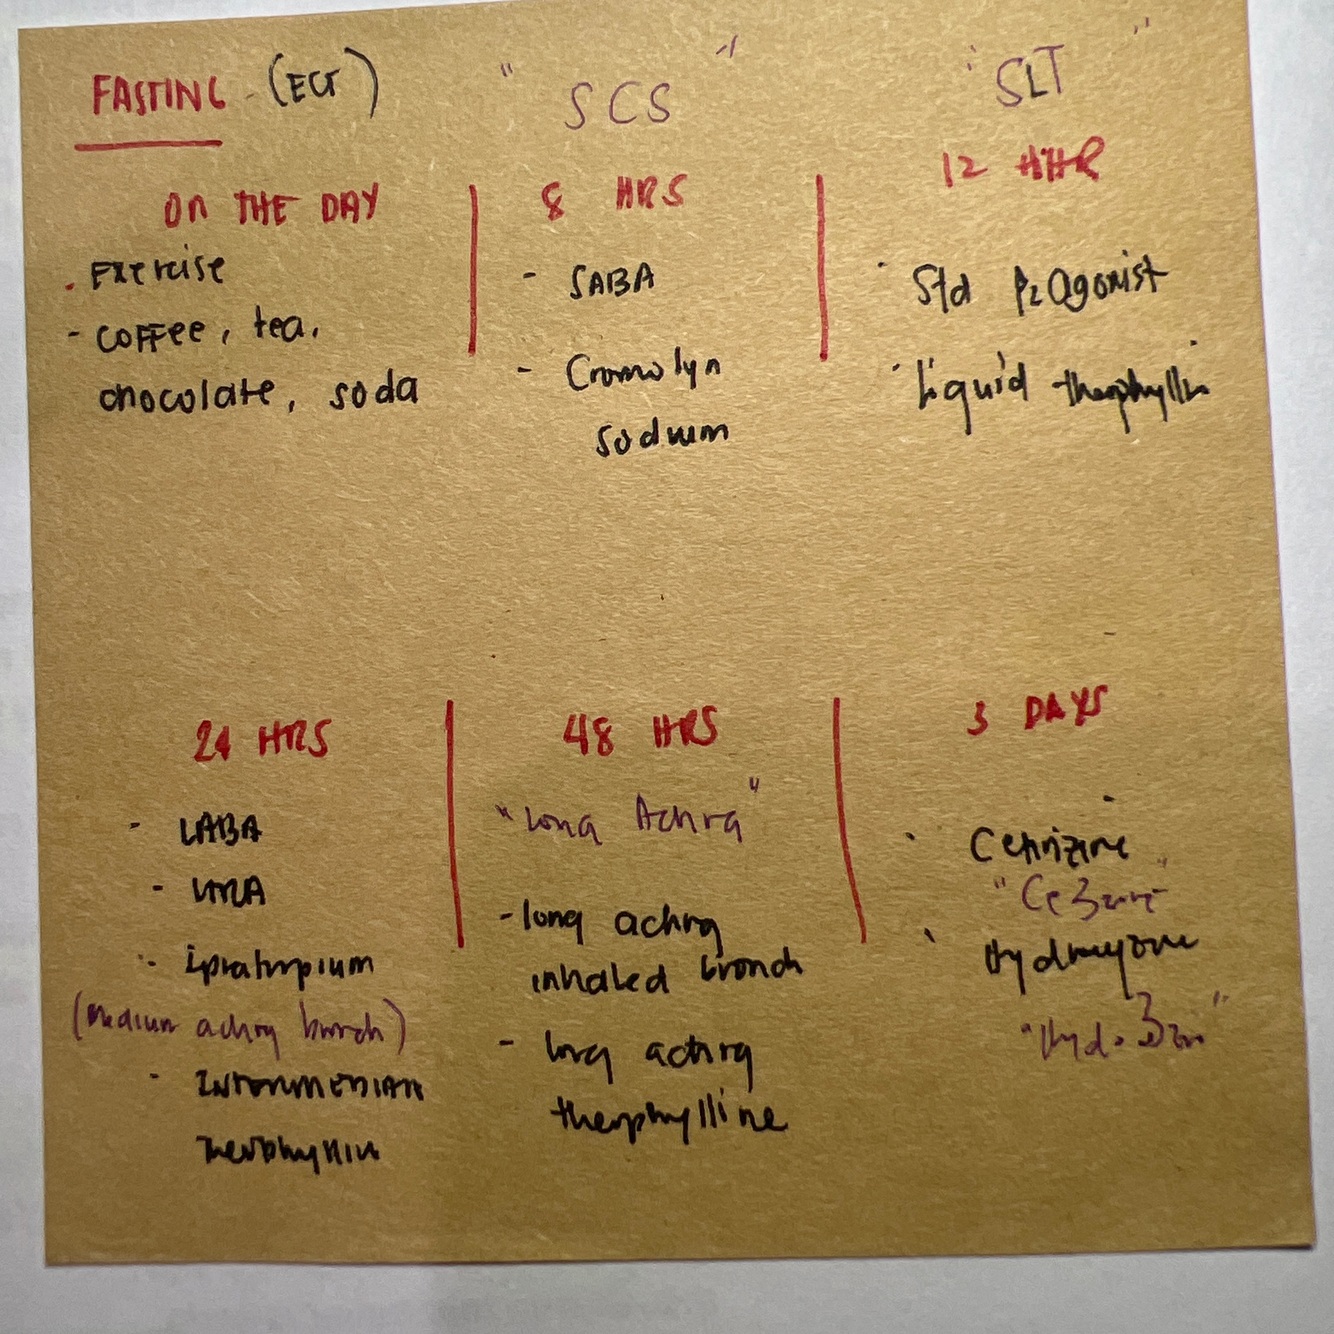 FASTING - (ECT)
"SCS"
"SLT"
ON THE DAY
. Exercise
- Coffee, tea,
chocolate, soda
8 HRS
- SABA
- Cromolyn
sodium
12 HR
- Std β2 Agonist
- Liquid theophyllin
24 HRS
- LABA
- LTRA
- Ipratropium
(Medium acting bronch)
- Intermediate
Theophyllin
48 HRS
"Long Acting"
- long acting
inhaled bronch
- long acting
theophylline
3 DAYS
- Cetirizine